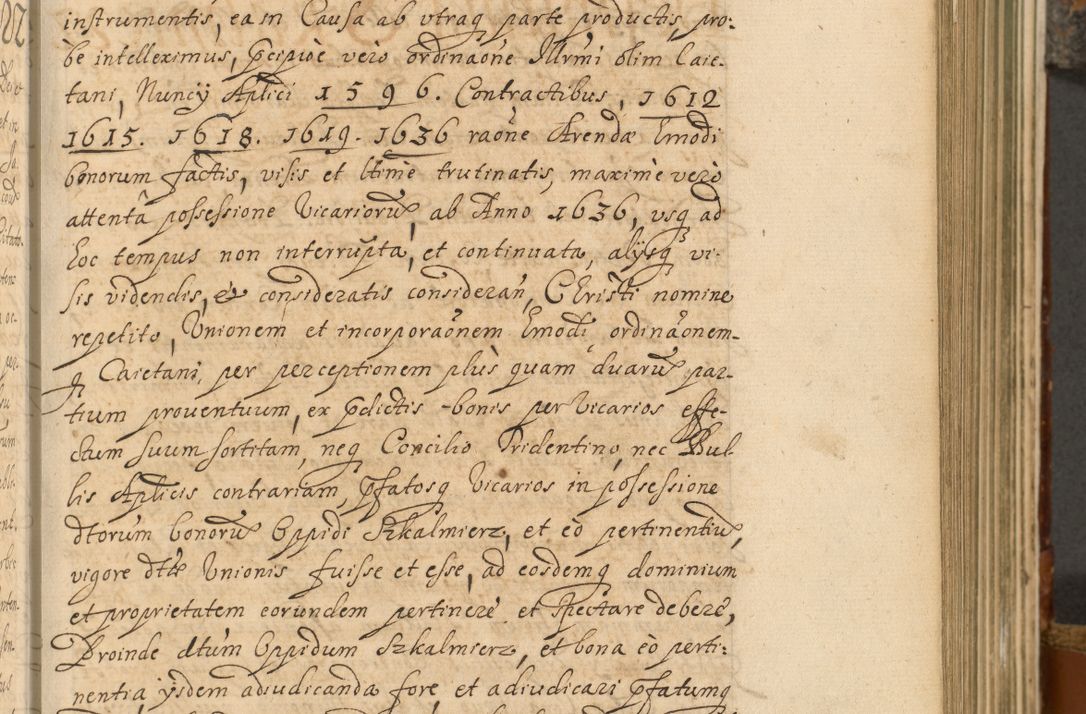 instrumentis, ea in Causa ab vtraq parte productis, pro:
be intelleximus, p̄cipiòe verò ordinaōne Illrmi olim Caie-
tani, Nuncÿ Aplici 1596. Contractibus, 1612
1615. 1618. 1619. 1636 raōne Arendæ hmōdi
bonorum factis, visis et ltimè trutinatis, maximè verò
attentâ possessione Vicariorū ab Anno 1636, vsq ad
hoc tempus non interrupta, et continuata, alÿsq vi-
sis videndis, et consideratis consideran, Christi nomine
repetito, Vnionem et incorporaōnem hmōdi, ordinaōnem-
q Caietani, per perceptionem plùs quam duarū par-
tium prouentuum, ex p̄dictis bonis per Vicarios effe-
ctum suum sortitam, neq Concilio Tridentino, nec Bul
lis Aplicis contrariam, p̄fatosq Vicarios in possessione
dtorum bonorū Oppidi Szkalmierz, et eò pertinentiū,
vigore dtæ Vnionis fuisse et esse, ad eosdemq dominium
et proprietatem eorundem pertinere et spectare debere,
Proinde dtum Oppidum Szkalmierz, et bona eò perti-
nentia ÿsdem adiudicanda fore et adiudicari p̄fatumq